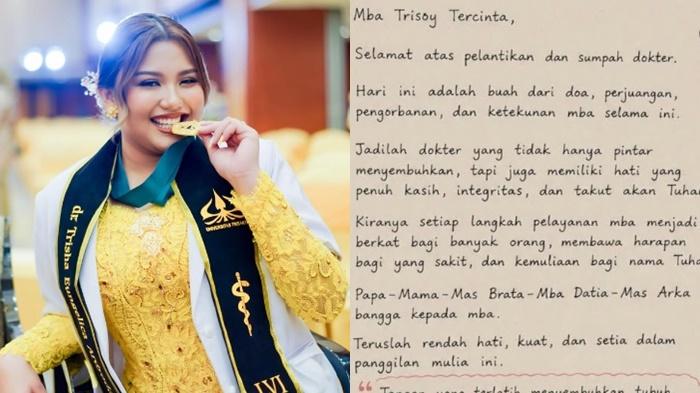 dr. Trisha Evangelica
UNIVERSITAS TRISAKTI
IVI
Mba Trisoy Tercinta,
Selamat atas pelantikan dan sumpah dokter.
Hari ini adalah buah dari doa, perjuangan,
pengorbanan, dan ketekunan mba selama ini.
Jadilah dokter yang tidak hanya pintar
menyembuhkan, tapi juga memiliki hati yang
penuh kasih, integritas, dan takut akan Tuhan
Kiranya setiap langkah pelayanan mba menjadi
berkat bagi banyak orang, membawa harapan
bagi yang sakit, dan kemuliaan bagi nama Tuha
Papa-Mama-Mas Brata-Mba Datia-Mas Arka
bangga kepada mba.
Teruslah rendah hati, kuat, dan setia dalam
panggilan mulia ini.
yang terlatih menyembuhkan tubuh